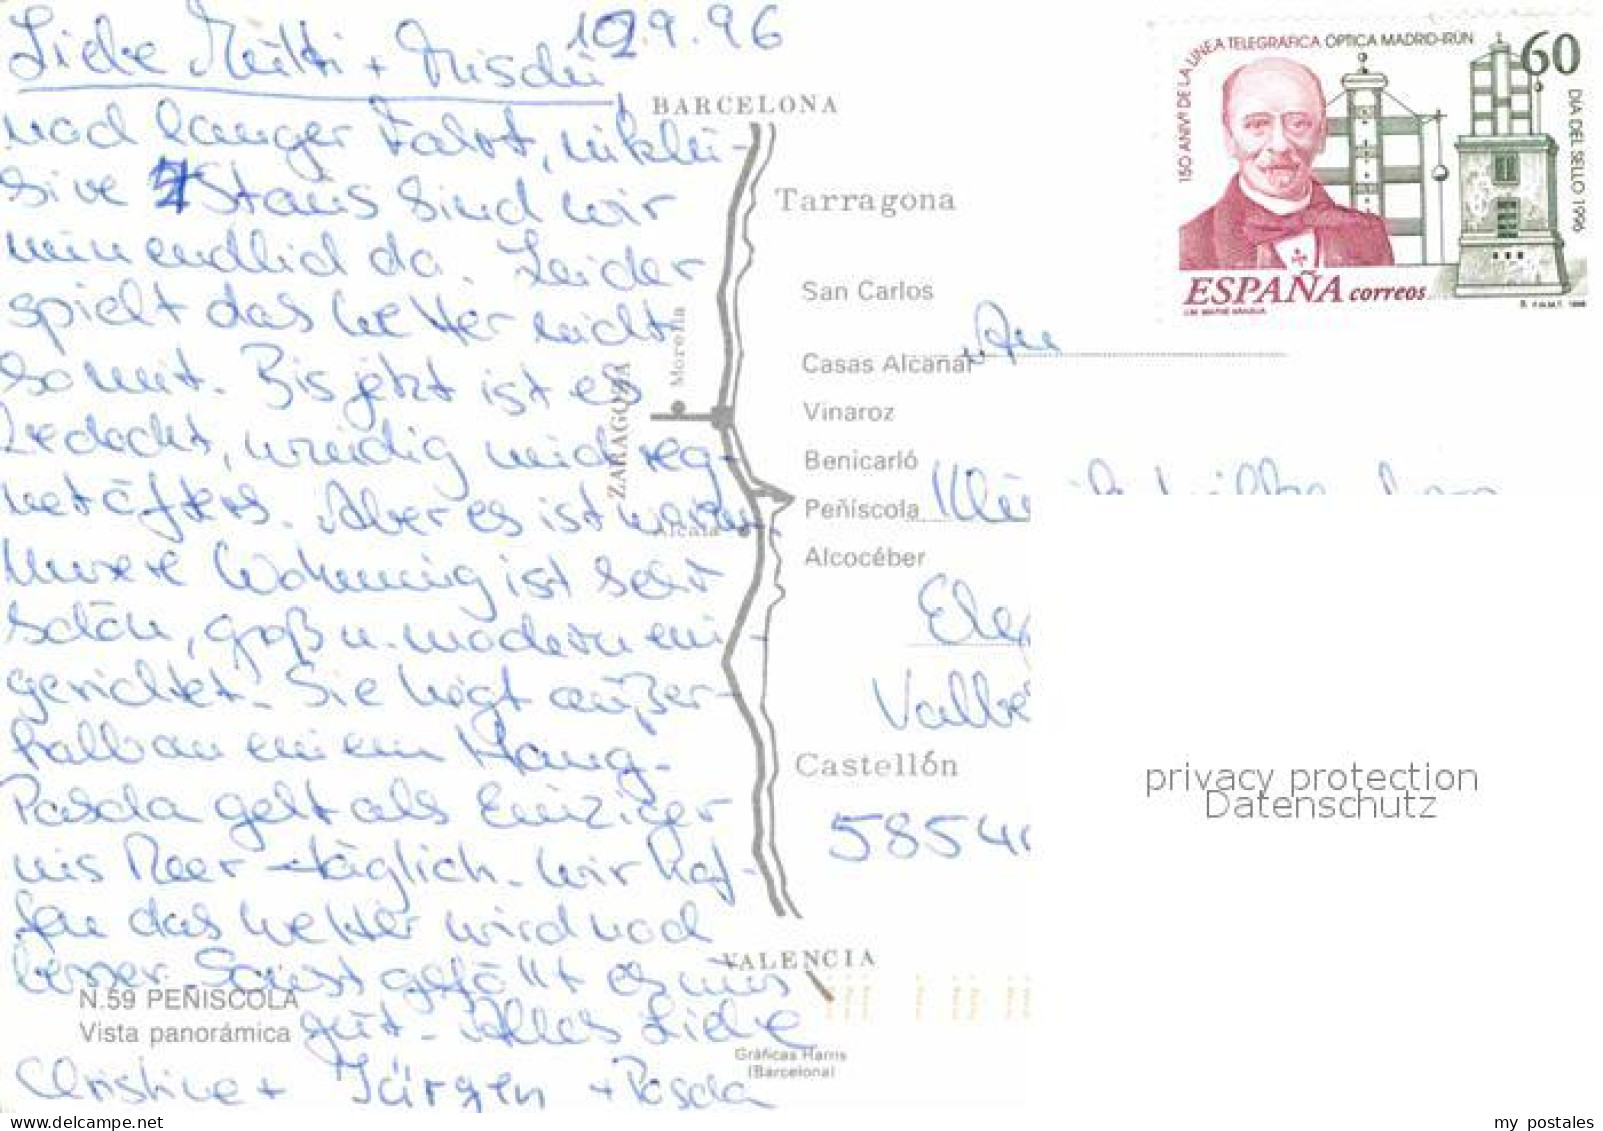 10.9.96
Liebe Mutti +
nach langer Fahrt, inklu-
sive Staus sind wir
nun endlich da. Leider
spielt das Wetter nicht
so mit. Bis jetzt ist es
bedeckt, windig und reg-
net öfters. Aber es ist warm.
Unsere Wohnung ist sehr
schön, groß u. modern ein-
gerichtet. Sie liegt außer-
halb an einem Hang.
Pascha geht als Einziger
ins Meer - täglich. Wir hof-
fen das Wetter wird noch
besser. Sonst gefällt es uns
gut. Alles Liebe
Christine + Jürgen + Pascha
N.59 PEÑISCOLA
Vista panorámica
BARCELONA
Tarragona
San Carlos
Casas Alcanar
Vinaroz
Benicarló
Peñíscola
Alcocéber
Morella
ZARAGOZA
Alcalá
Castellón
VALENCIA
Gráficas Harris
(Barcelona)
150 ANIV. DE LA LÍNEA TELEGRÁFICA ÓPTICA MADRID-IRÚN
60
DIA DEL SELLO 1996
ESPAÑA correos
An
Valbe
5854
privacy protection
Datenschutz
my postales